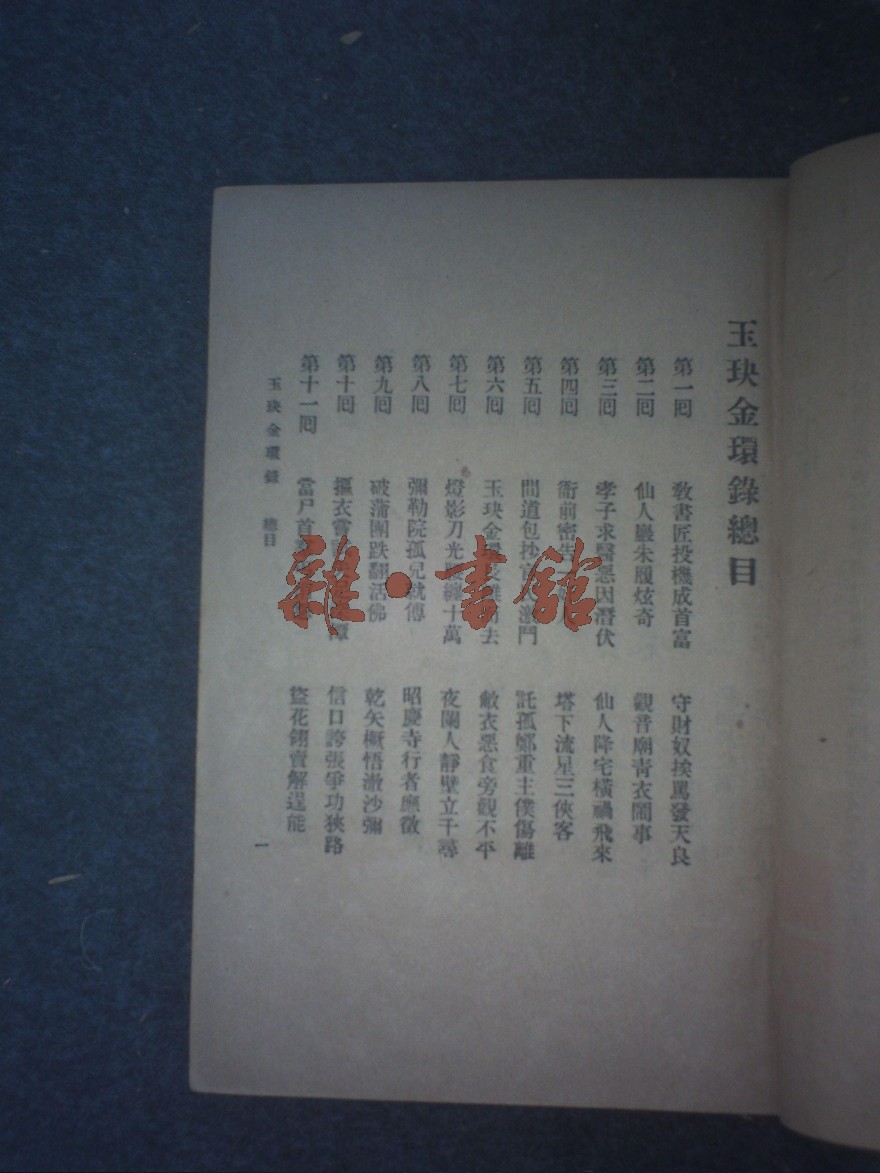 玉玦金環錄總目
第一囘 教書匠投機成首富 守財奴挨罵發天良
第二囘 仙人巖朱履炫奇 觀音廟青衣鬧事
第三囘 孝子求醫惡因潛伏 仙人降宅橫禍飛來
第四囘 衙前密告 塔下流星三俠客
第五囘 間道包抄官 激鬥 託孤鄭重主僕傷離
第六囘 玉玦金 去 敝衣惡食旁觀不平
第七囘 燈影刀光 十萬 夜闌人靜壁立千尋
第八囘 彌勒院孤兒就傅 昭慶寺行者應徵
第九囘 破蒲團跌翻活佛 乾矢橛悟澈沙彌
第十囘 摳衣 潭 信口誇張爭功狹路
第十一囘 當尸首 盜花翎賣解逞能
玉玦金環錄 總目
一
雜·書館